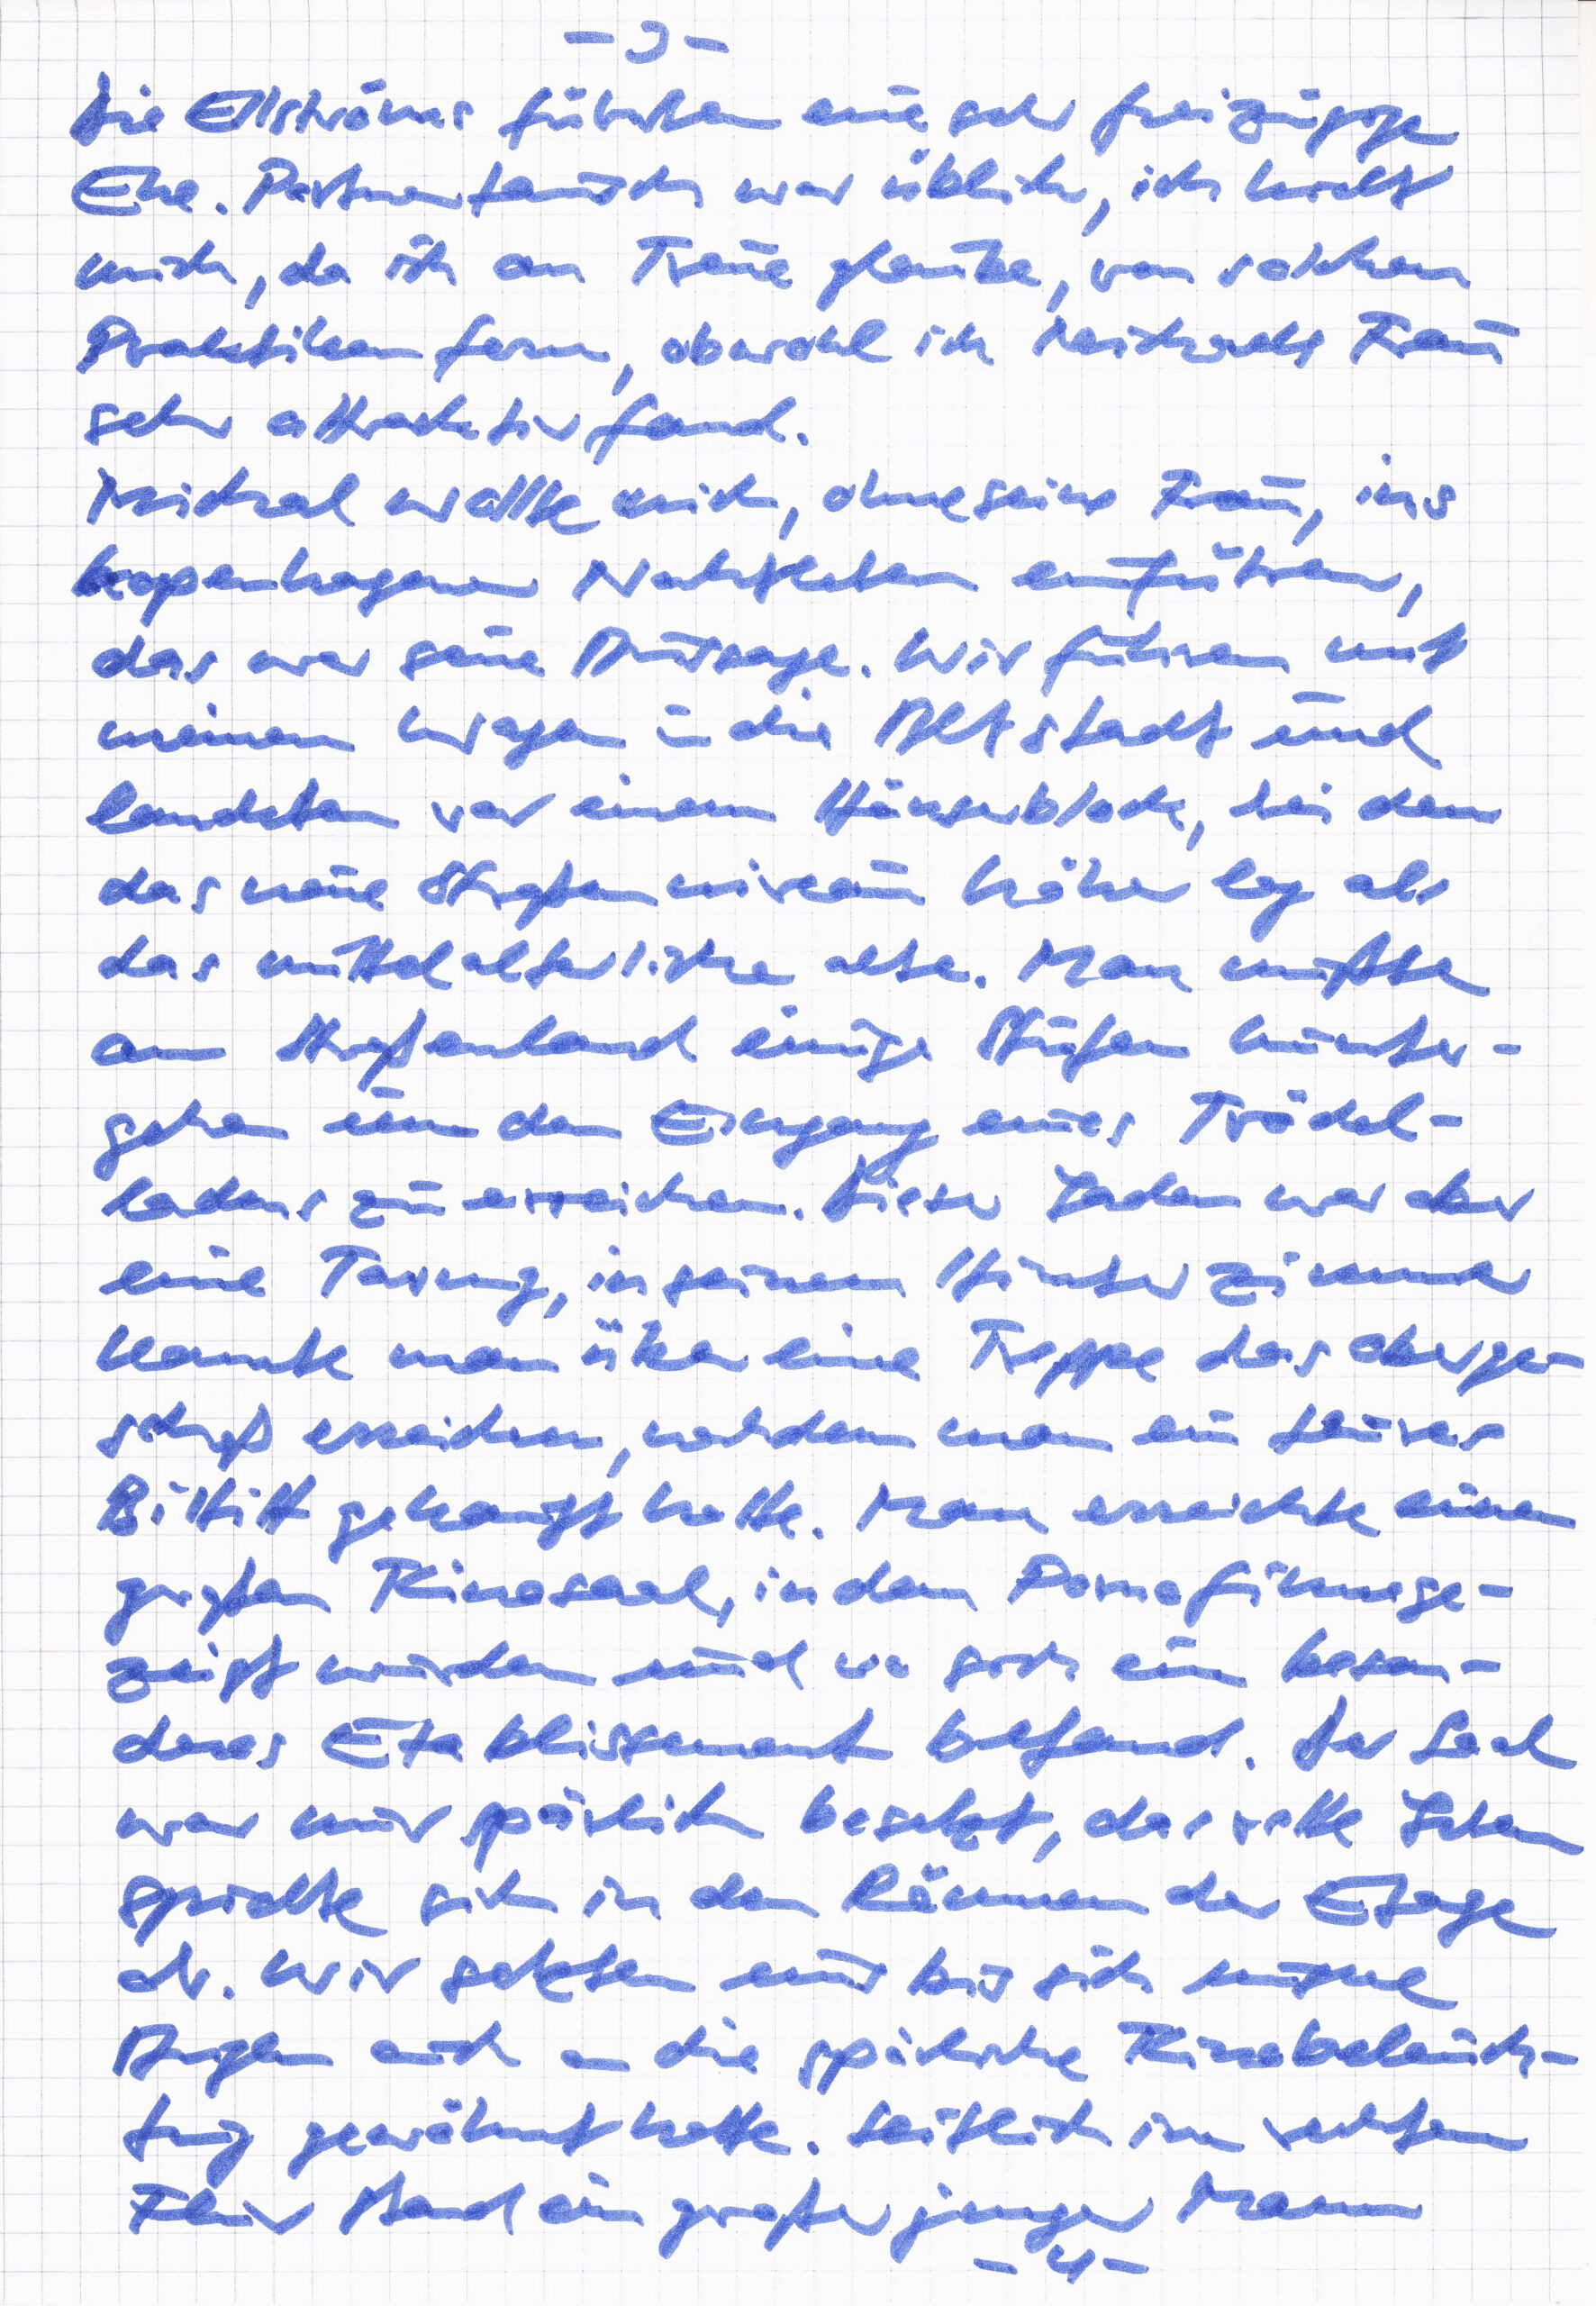 - 3 -
Die Ellströms führten eine sehr freizügige
Ehe. Partnertausch war üblich, ich hielt
mich, da ich an Treue glaube, von solchen
Praktiken fern, obwohl ich Michaels Frau
sehr attraktiv fand.
Michael wollte mich, ohne seine Frau, ins
kopenhagener Nachtleben einführen,
das war seine Aussage. Wir fuhren mit
meinem Wagen in die Altstadt und
landeten vor einem Häuserblock, bei dem
das neue Straßenniveau höher lag als
das mittelalterliche alte. Man mußte
am Straßenland einige Stufen hinunter-
gehen um den Eingang eines Trödel-
ladens zu erreichen. Dieser Laden war aber
eine Tarnung, in seinem Hinterzimmer
konnte man über eine Treppe das Oberge-
schoß erreichen, nachdem man ein teures
Billitt gekauft hatte. Man erreichte einen
großen Kinosaal, in dem Pornofilme ge-
zeigt wurden und wo sich ein beson-
deres Etablissement befand. Der Saal
war nur spärlich besetzt, das volle Leben
spielte sich in den Räumen der Etage
ab. Wir setzten uns bis sich unsere
Augen auch an die spärliche Kinobeleuch-
tung gewöhnt hatte. Seitlich im rechten
Flur stand ein großer junger Mann
- 4 -